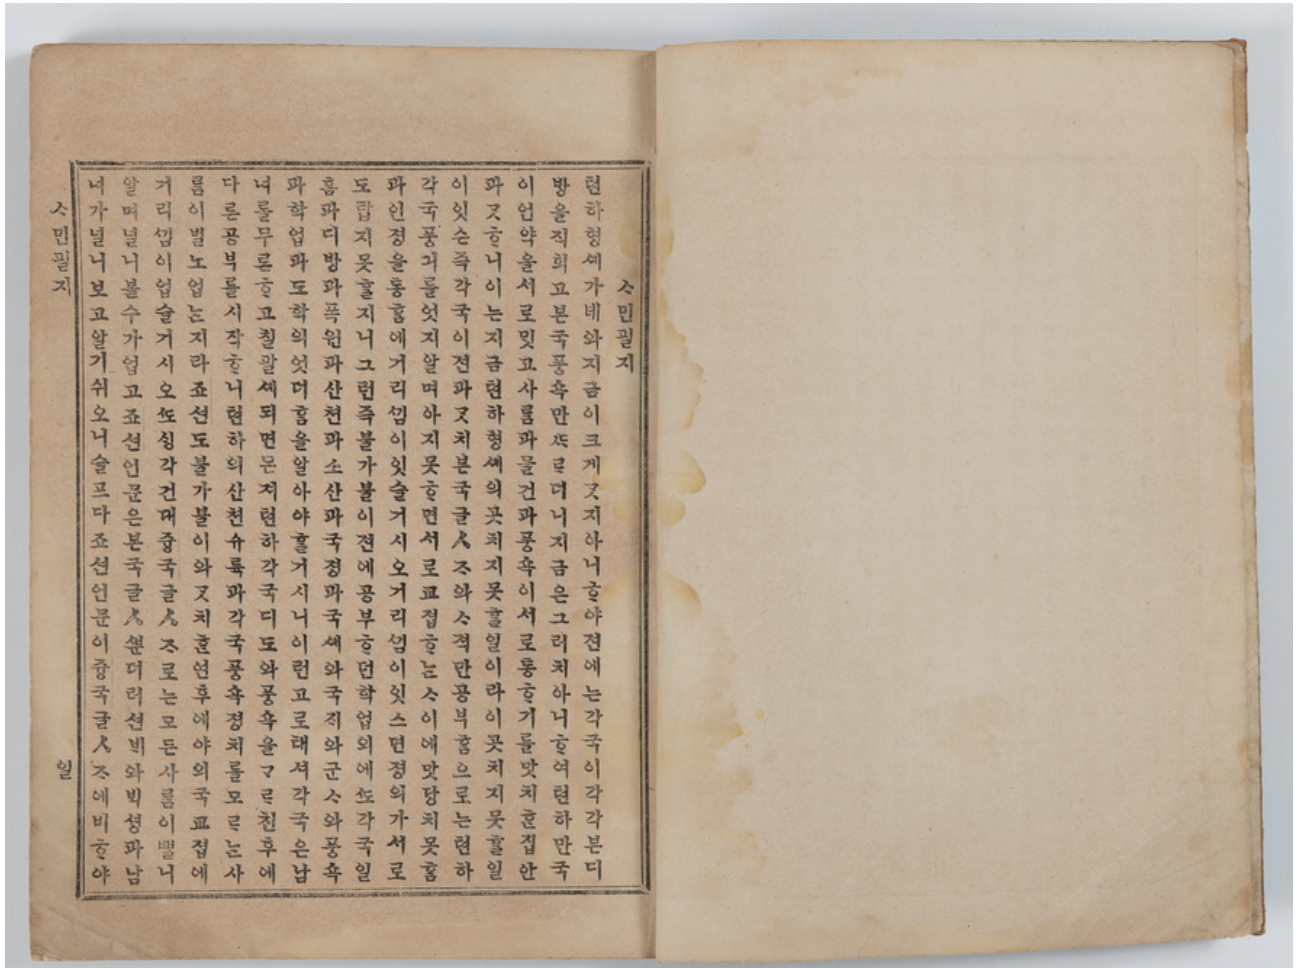 ᄉᆞ민필지
텬하형셰가녜와지금이크게ᄀᆞᆺ지아니ᄒᆞ야젼에는각국이각각본디
방을직희고본국풍쇽만ᄯᆞᄅᆞ더니지금은그러치아니ᄒᆞ여텬하만국
이언약을서로밋고사ᄅᆞᆷ과물건과풍쇽이서로통ᄒᆞ기를맛치ᄒᆞᆫ집안
과ᄀᆞᆺᄒᆞ니이는지금텬하형셰의곳치지못ᄒᆞᆯ일이라이곳치지못ᄒᆞᆯ일
이잇슨즉각국이젼과ᄀᆞᆺ치본국글ㅅᄌᆞ와ᄉᆞ젹만공부ᄒᆞᆷ으로는텬하
각국풍긔를엇지알며아지못ᄒᆞ면서로교졉ᄒᆞᄂᆞᆫᄉᆞ이에맛당치못ᄒᆞᆷ
과인졍을통ᄒᆞᆷ에거리ᄭᅵᆷ이잇슬거시오거리ᄭᅵᆷ이잇스면졍의가서로
도합지못ᄒᆞᆯ지니그런즉불가불이젼에공부ᄒᆞ던학업외에ᄯᅩ각국일
홈과디방과폭원과산쳔과소산과국졍과국셰와국ᄌᆡ와군ᄉᆞ와풍쇽
과학업과도학의엇더ᄒᆞᆷ을알아야ᄒᆞᆯ거시니이런고로태셔각국은남
녀를무론ᄒᆞ고칠팔셰되면몬져텬하각국디도와풍쇽을ᄀᆞᄅᆞ친후에
다른공부를시작ᄒᆞ니텬하의산쳔슈륙과각국풍쇽졍치를모ᄅᆞᄂᆞᆫ사
ᄅᆞᆷ이별노업ᄂᆞᆫ지라죠션도불가불이와ᄀᆞᆺ치ᄒᆞᆫ연후에야외국교졉에
거리ᄭᅵᆷ이업슬거시오ᄯᅩᄉᆡᆼ각건대즁국글ㅅᄌᆞ로는모든사ᄅᆞᆷ이ᄲᆞᆯ니
알며널니볼수가업고죠션언문은본국글ㅅᄲᅮᆫ더러션ᄇᆡ와ᄇᆡᆨ셩과남
녀가널니보고알기쉬오니슬프다죠션언문이즁국글ㅅᄌᆞ에비ᄒᆞ야
ᄉᆞ민필지 일